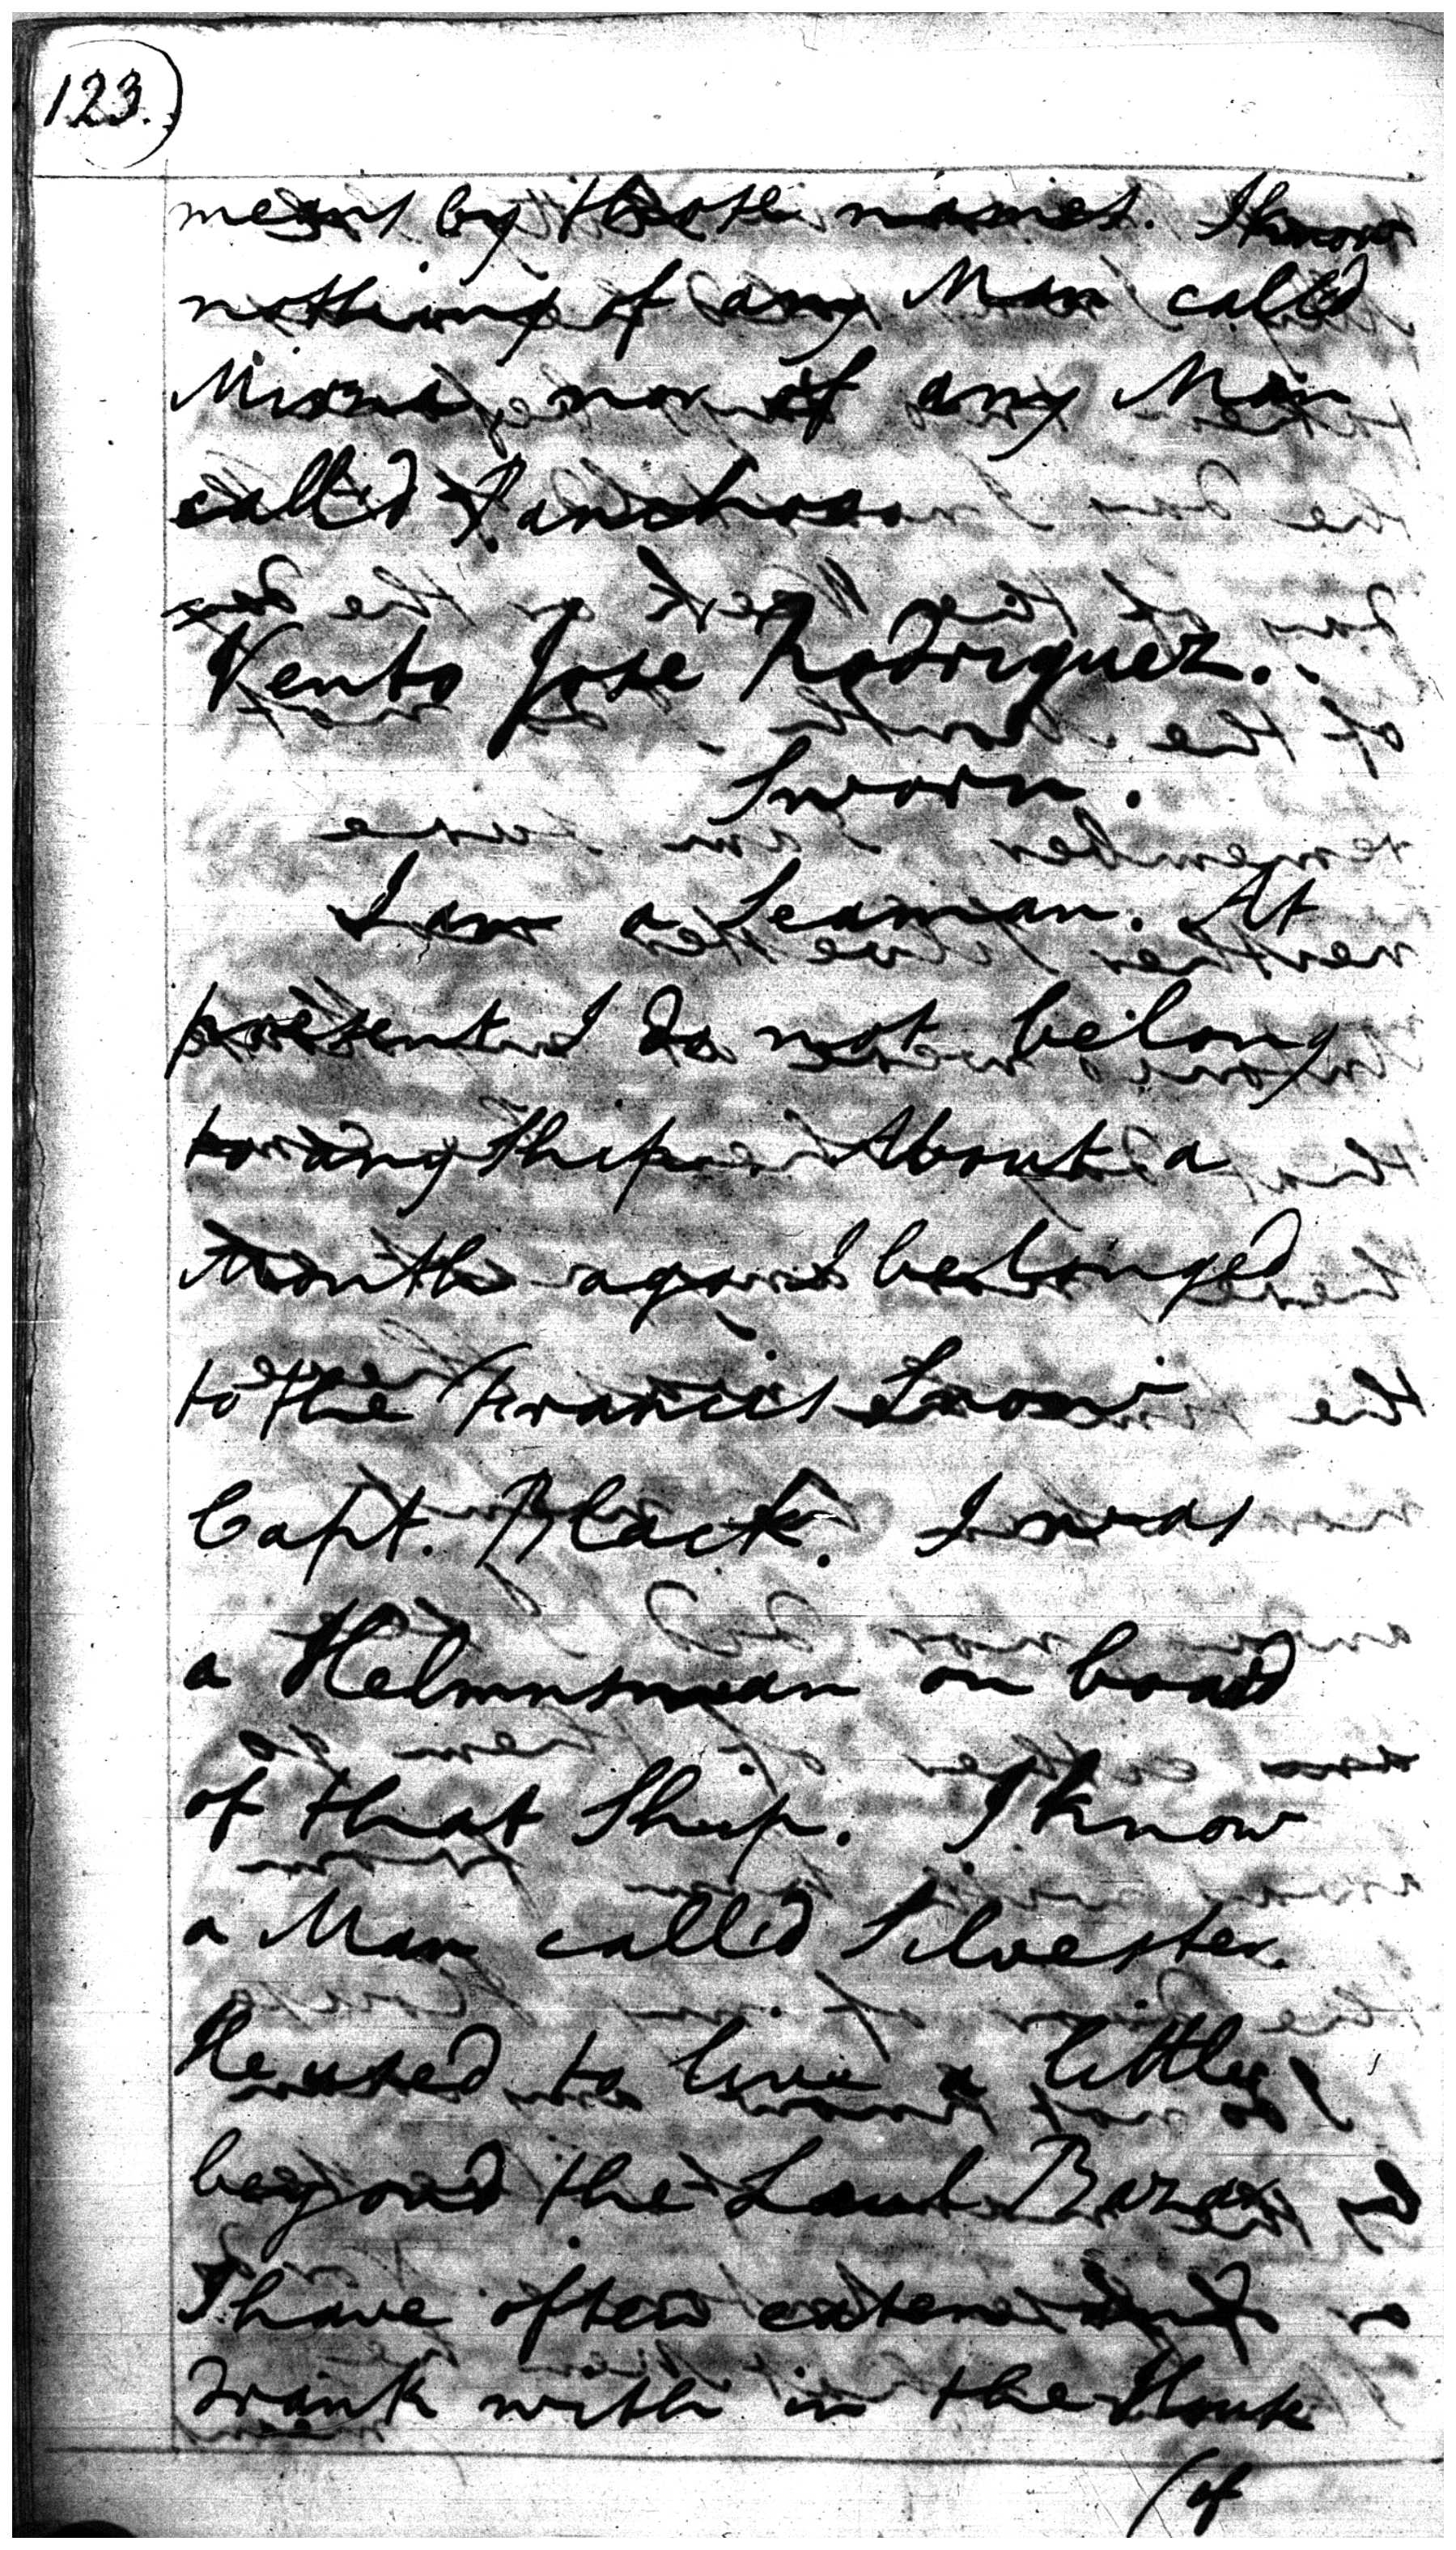 123.
meant by those names. I know
nothing of any Man called
nor of any Man
called
Vento Jose Rodriguez.
Sworn.
I am a Seaman. At
present I do not belong
to any Ship. About a
Month ago I belonged
to the Francis
Capt. Black. I was
a Helmnsman on board
of that Ship. I know
a Man called Silvester.
He used to live a little
beyond the Laul Bazar
I have often eaten and
drank with in the House
(of